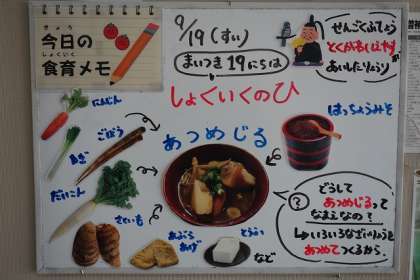 きょう
今日の
しょくいく
食育メモ
9/19(すい)
まいつき19にちは
しょくいくのひ
せんごくぶしょう
とくがわいえやすが
あいしたりょうり
にんじん
ごぼう
ねぎ
だいこん
さといも
あぶら
あげ
とうふ
など
あつめじる
はっちょうみそ
?
どうして
あつめじるって
なまえなの?
↳いろいろなざいりょうを
あつめてつくるから。